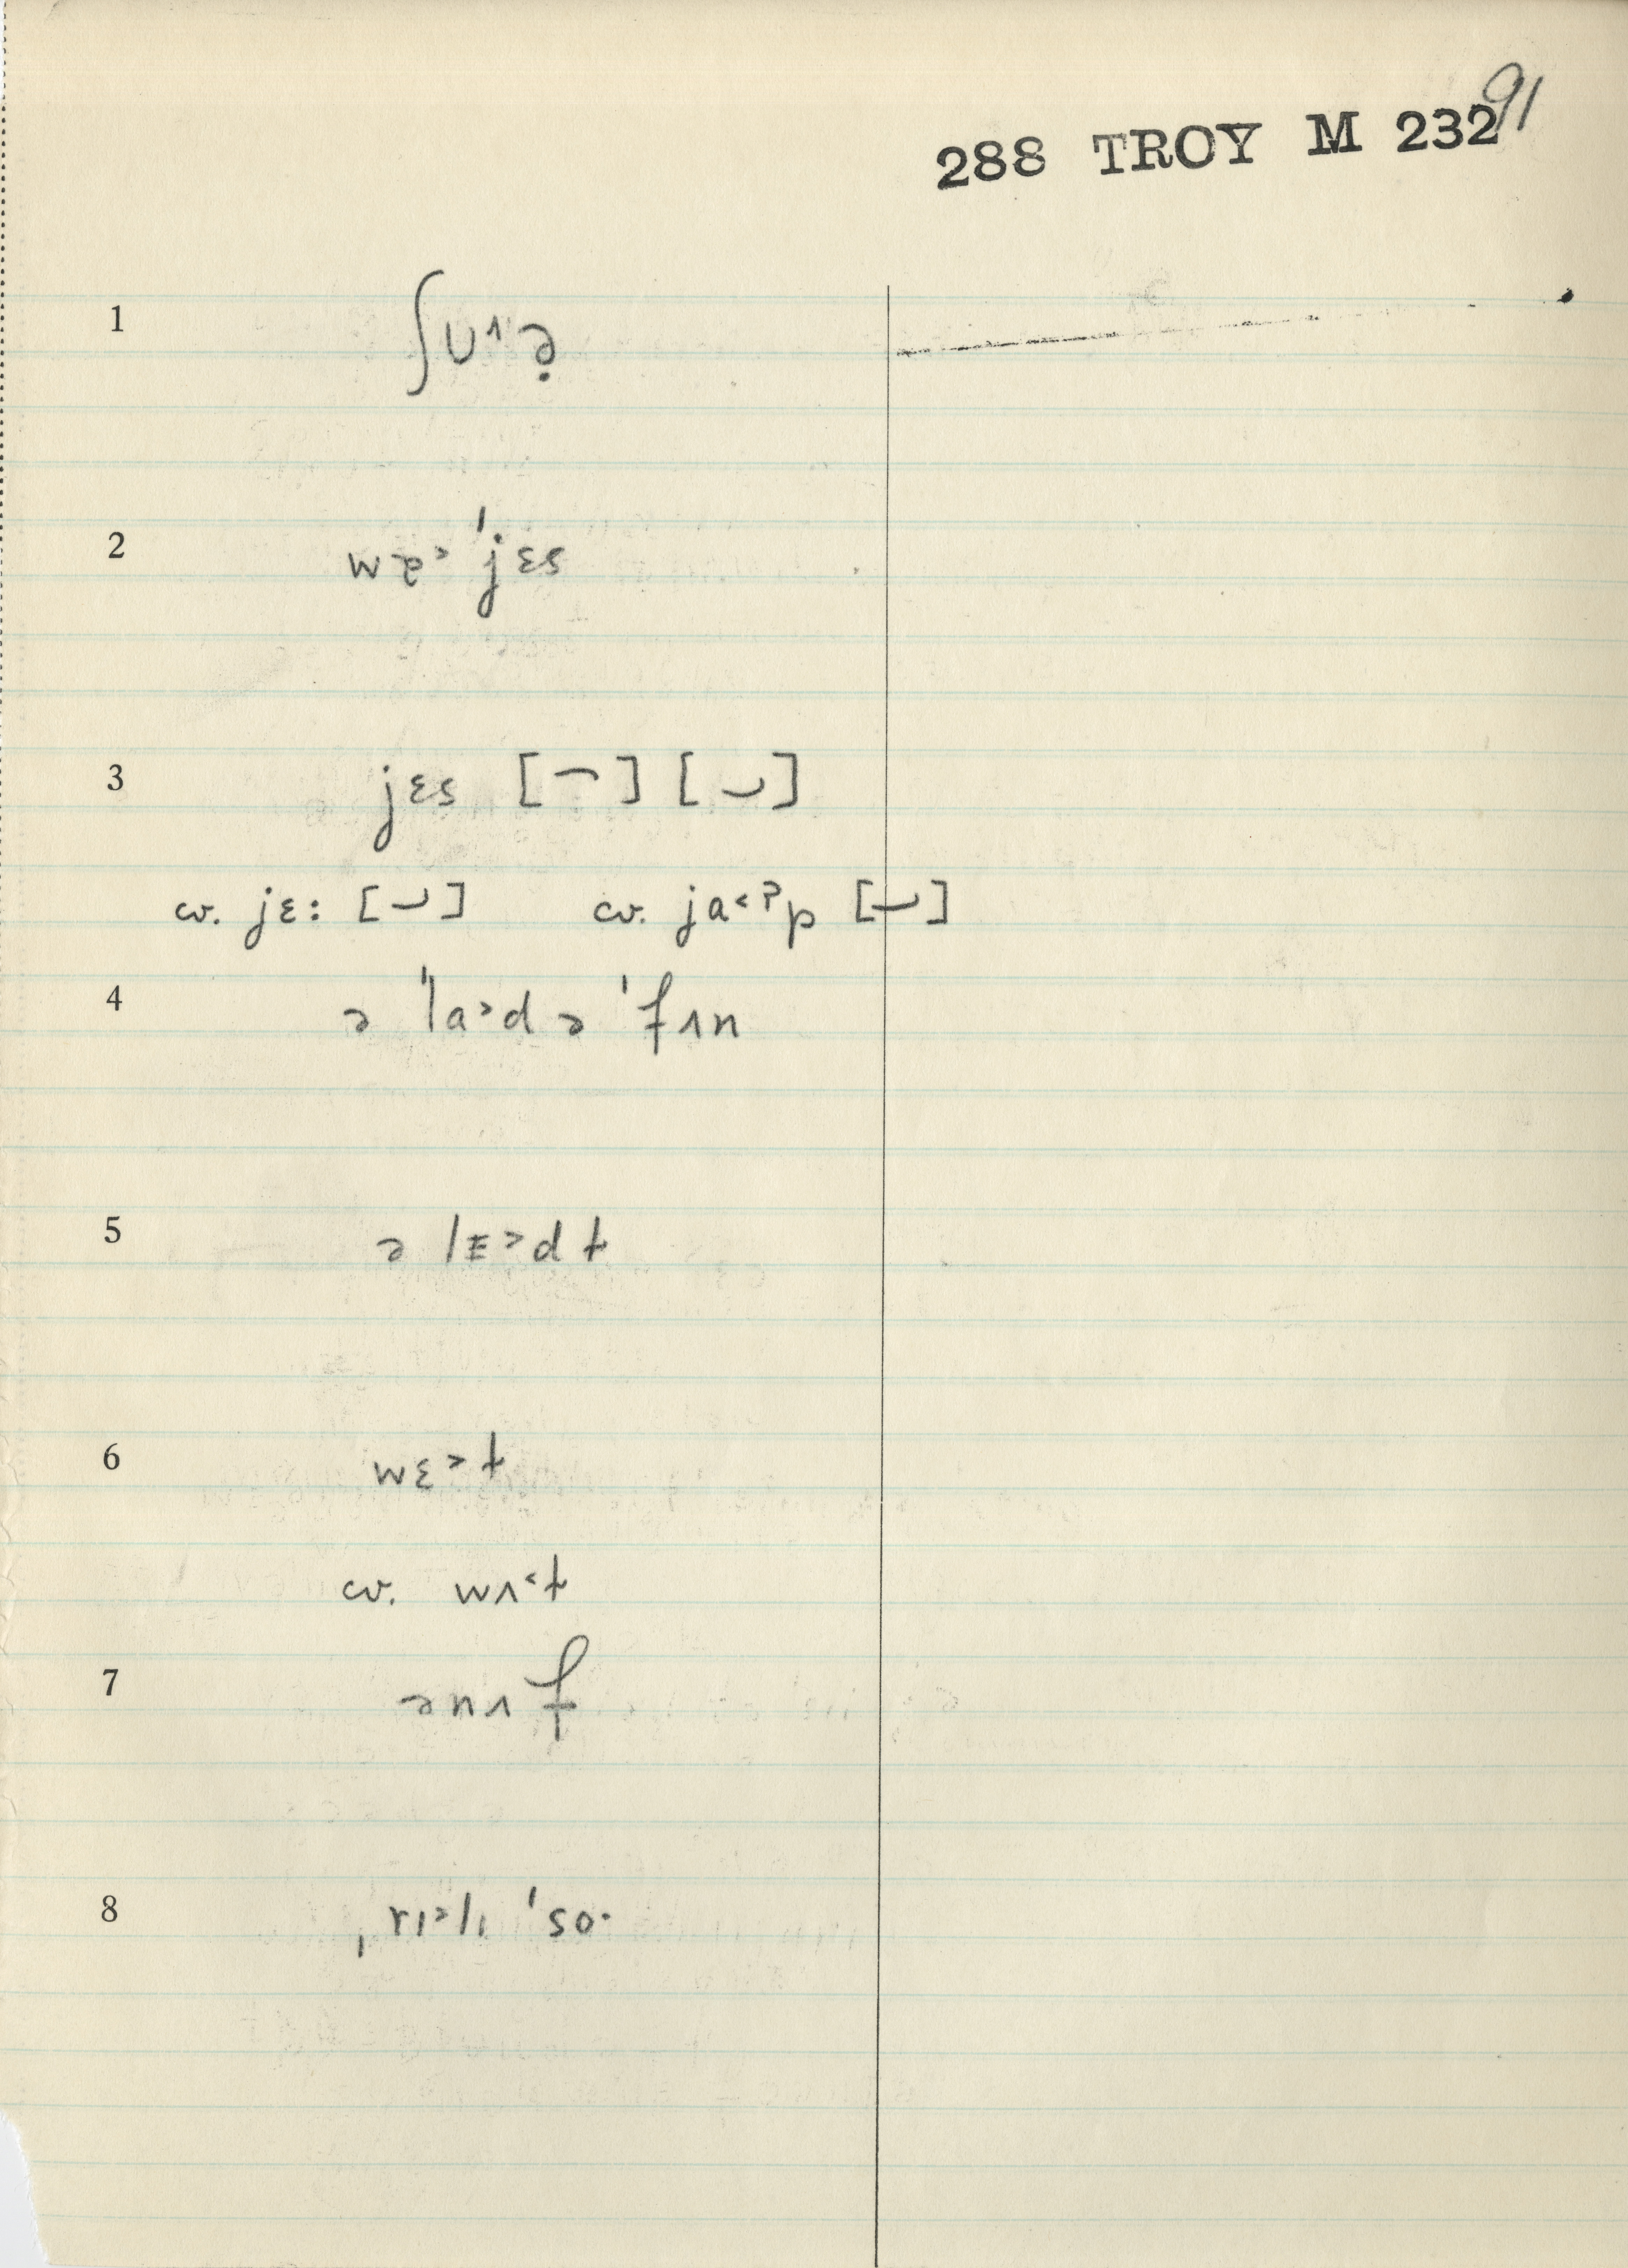 91
288 TROY M 232
1 ʃU^ə̣
2 wɐ> ˈjɛs
3 jɛs [⌒] [⌣]
cv. jɛ: [⌣] cv. ja<ˀp [⌣]
4 ə ˈla>d ə ˈfʌn
5 ə lᴇ>d ɫ
6 wɛ>t
cv. wʌ<t
7 ənʌf
8 ˌrɪ>lɪ ˈso·